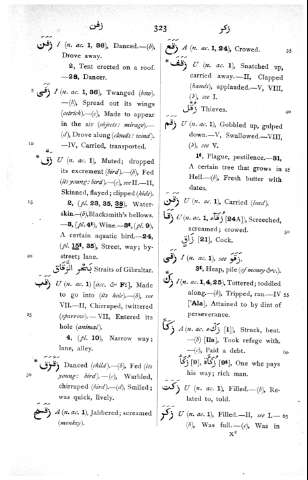 زفن 323 زكر
زَفَنَ I (n. ac. 1, 36), Danced.—(b),
Drove away.
2, Tent erected on a roof.
—28, Dancer.
I (n. ac. 1, 36), Twanged (bow).
—(b), Spread out its wings
(ostrich).—(c), Made to appear
in the air (objects: mirage).—
(d), Drove along (clouds: wind).
—IV, Carried, transported.
زَقَّ U (n. ac. 1), Muted; dropped
its excrement (bird).—(b), Fed
(its young: bird).—(c), see II.—II,
Skinned, flayed; clipped (hide).
2, (pl. 23, 35, 28), Water-
skin.—(b), Blacksmith's bellows.
A certain aquatic bird.—24,
Street, way; by-
street; lane.
Straits of Gibraltar.
زَقَبَ U (n. ac. 1) [acc. & Fī], Made
to go into (its hole).—(b), see
VII.—II, Chirped, twittered
(sparrow).—VII, Entered its
hole (animal).
4, (pl. 10), Narrow way;
lane, alley.
زَقْزَقَ Danced (child).—(b), Fed (its
young: bird).—(c), Warbled,
chirruped (bird).—(d), Smiled;
was quick, lively.
A (n. ac. 1), Jabbered; screamed
(monkey).
زَقَعَ A (n. ac. 1, 24), Crowed.
U (n. ac. 1), Snatched up,
carried away.—II, Clapped
(hands) applauded.—V, VIII,
(b), see I.
Thieves.
زَقَمَ U (n. ac. 1), Gobbled up, gulped
down.—V, Swallowed.—VIII,
(b), see V.
Plague, pestilence.—31,
A certain tree that grows in
Hell.—(b), Fresh butter with
dates.
زَقَنَ U (n. ac. 1), Carried (load).
زَقَا U (n. ac. 1, [24A]), Screeched,
screamed; crowed.
[21], Cock.
I (n. ac. 1), see زقو.
Heap, pile (of money &c.).
زَكَّ I (n. ac. 1, 4, 25), Tottered; toddled
along.—(b), Tripped, ran.—IV
['Ala], Attained to by dint of
perseverance.
زَكَأَ A (n. ac. 1), Struck, beat.
—(b) [Ila], Took refuge with.
—(c), Paid a debt.
One who pays
his way; rich man.
زَكَتَ U (n. ac. 1), Filled.—(b), Re-
lated to, told.
زَكَرَ U (n. ac. 1), Filled.—II, see I.—
(b), Was full.—(c), Was in